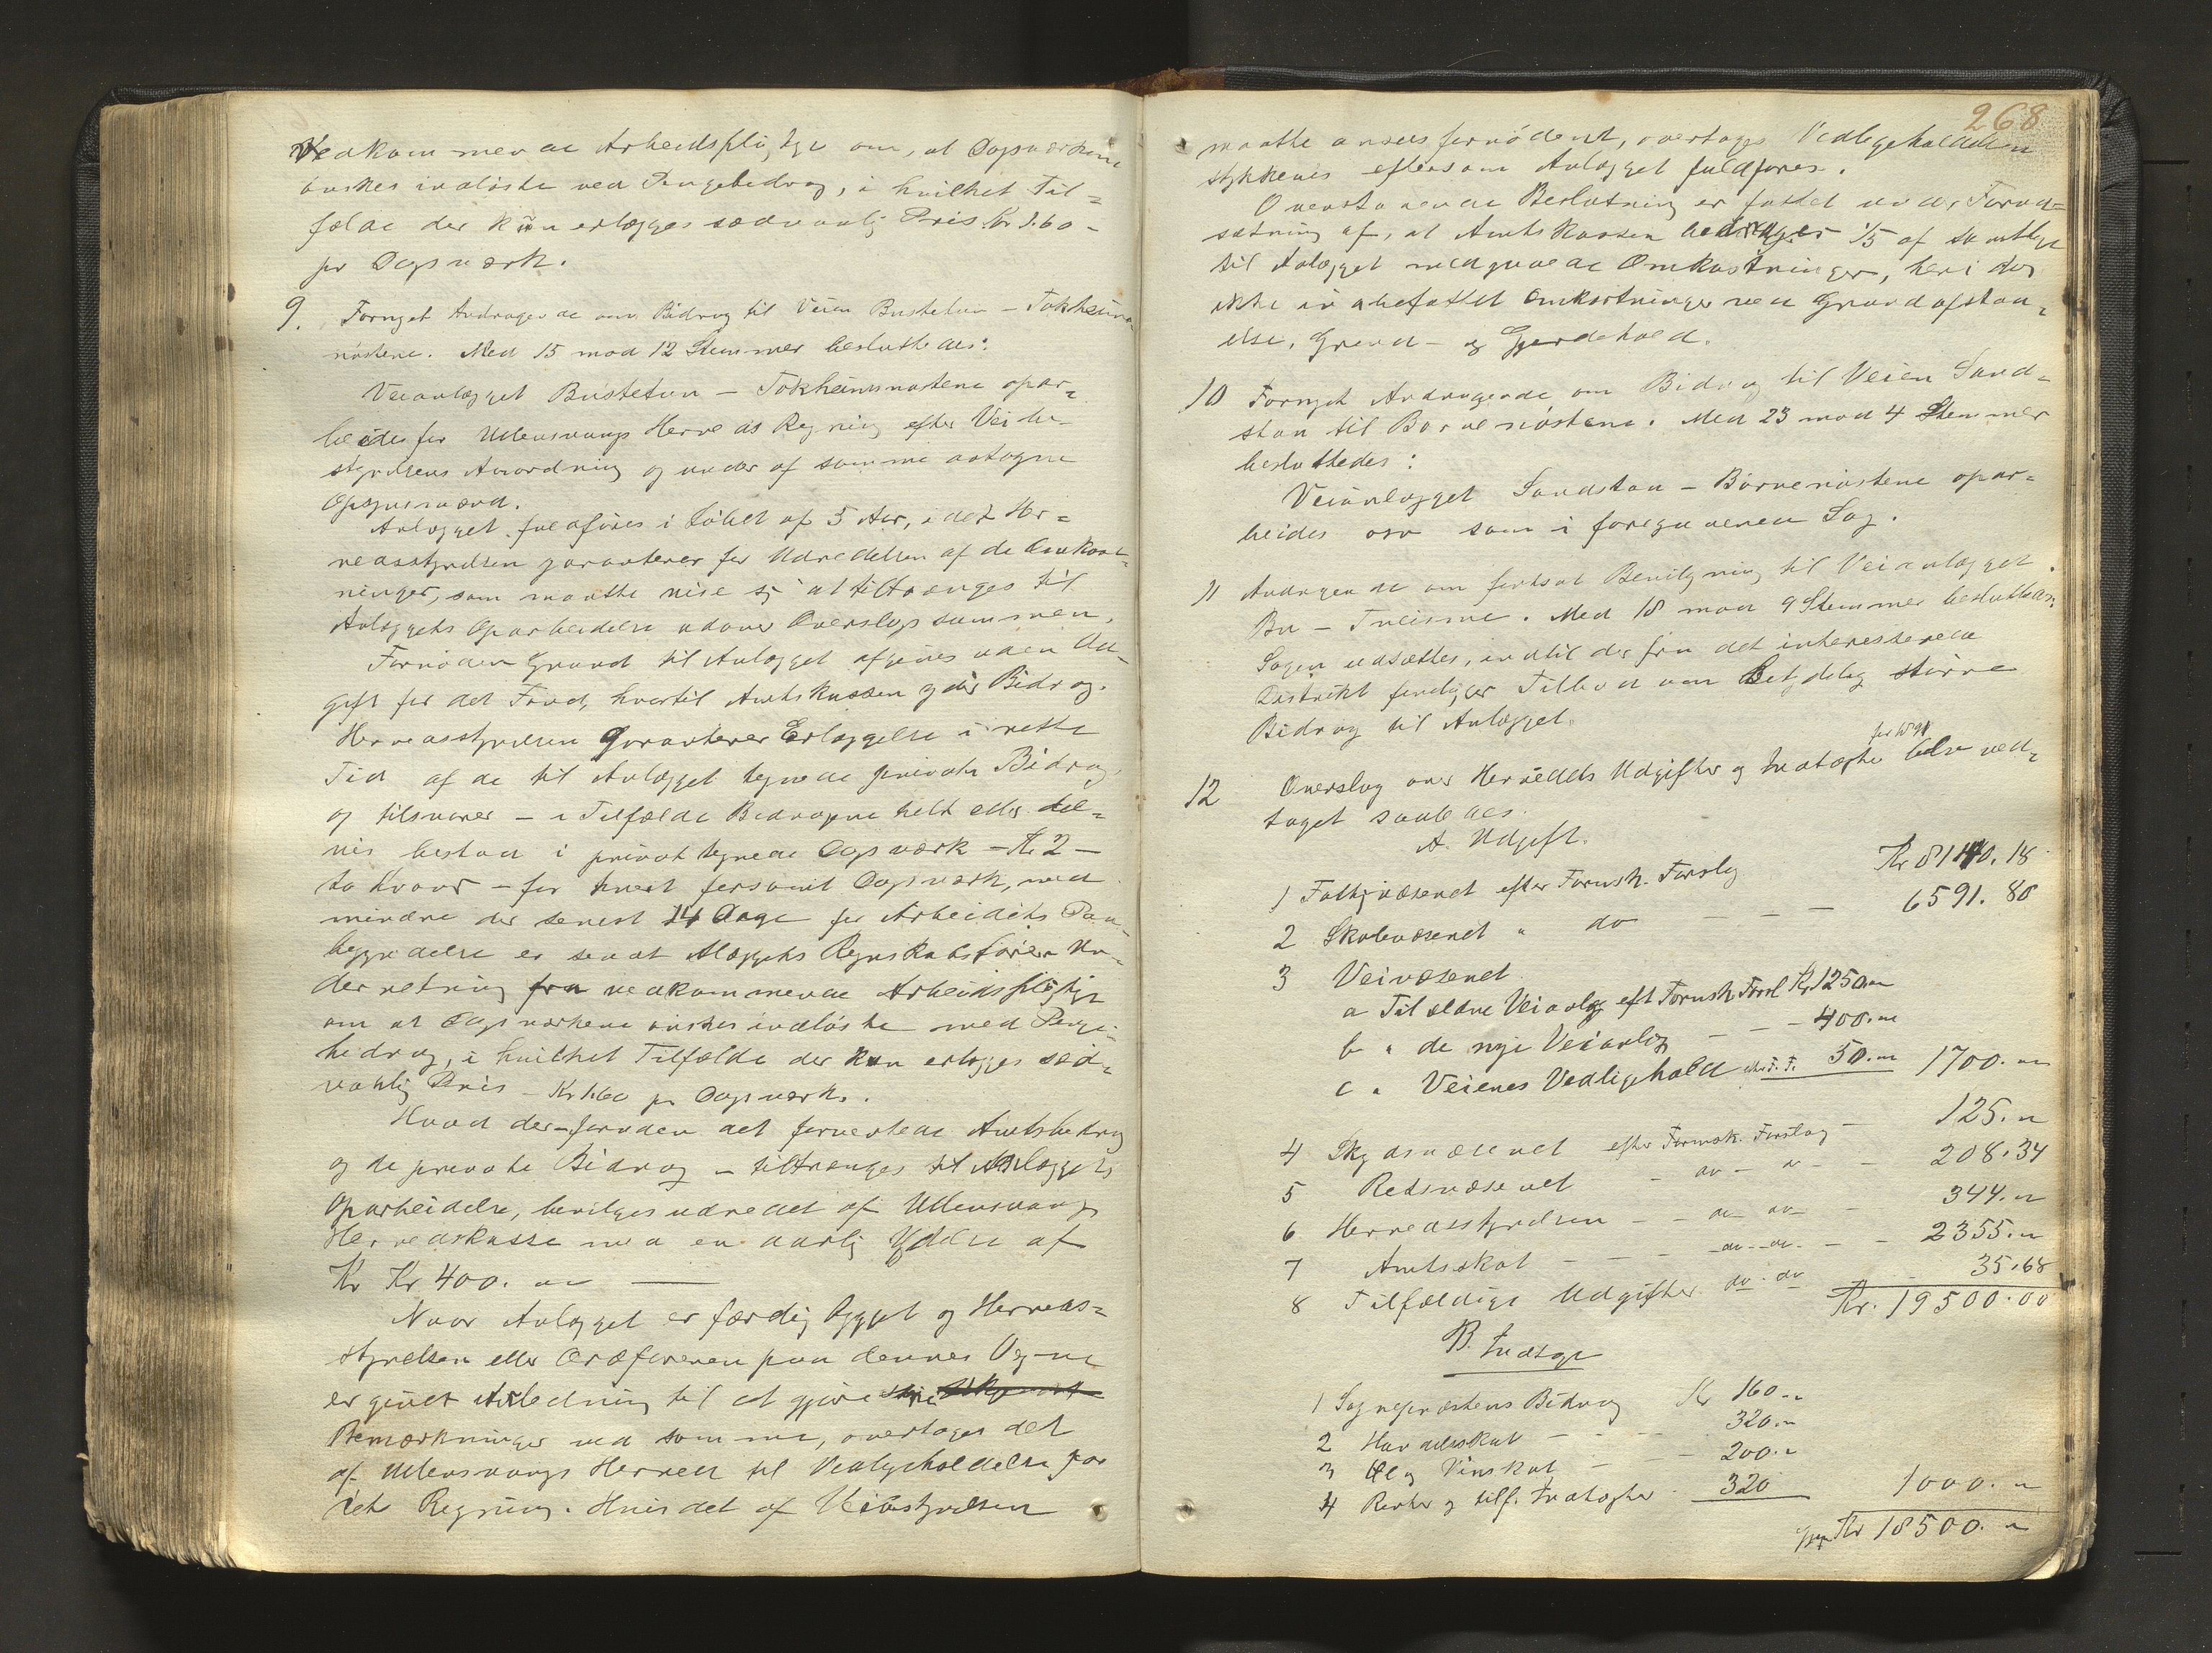 Vedkommende Arbeidspligtige om, at Dagsværkene
ønskes indløste ved Pengebidrag, i hvilket Til=
fælde der kun erlægges sædvanlig Pris Kr 1.60 -
pr Dagsværk.
9. Fornyet Andragende om Bidrag til Veien Bustetun - Tokheims
nøstene. Med 15 mod 12 Stemmer besluttedes:
Veianlægget Bustetun - Tokheimsnøstene opar=
beides for Ullensvangs Herreds Regning efter Veibe-
styrelsens Anordning og under af samme antagne
Opsynsmænd.
Anlægget fuldføres i Løbet af 5 Aar, idet Her=
redsstyrelsen garanterer for Udredelsen af de Omkost=
ninger, som maatte vise sig at tiltrænges til
Anlæggets Oparbeidelse udover Overslagssummen.
Fornøden Grund til Anlægget afgives uden Ud=
gift for det Fond, hvortil Amtskassen yder Bidrag.
Herredsstyrelsen garanterer Erlæggelse i rette
Tid af de til Anlægget tegnede private Bidrag,
og tilsvarer - i Tilfælde Bidragene helt eller del=
vis bestaa i privat tegnede Dagsværk - Kr 2 -
to Kroner - for hvert forsømt Dagsværk, med
mindre der senest 14 Dage før Arbeidets Paa=
begyndelse er sendt Anlæggets Regnskabsfører Un=
derretning fra vedkommende Arbeidspligtige
om at Dagsværkene ønskes indløste med Penge=
bidrag, i hvilket Tilfælde der kun erlægges sæd=
vanlig Pris - Kr 1.60 pr Dagsværk.
Hvad der - foruden det forventede Amtsbidrag
og de private Bidrag - tiltrænges til Anlæggets
Oparbeidelse, bevilges udredet af Ullensvangs
Herredskasse med en aarlig Ydelse af
Kr Kr 400. "
Naar Anlægget er færdig bygget og Herreds=
styrelsen eller Ordføreren paa dennes Vegne
er givet Anledning til at gjøre sine
Bemærkninger ved samme, overtages det
af Ullensvangs Herred til Vedligeholdelse for
dets Regning. Hvis det af Veibestyrelsen
268
maatte ansees fornødent, overtages Vedligeholdelsen
stykkevis eftersom Anlægget fuldføres.
Ovenstaaende Beslutning er fattet under Forud=
sætning af, at Amtskassen bidrager 1/5 af samtlige
til Anlægget medgaaende Omkostninger, heri dog
ikke indbefattet Omkostninger ved Grundafstaa=
else, Grund- og Gjerdehold.
10 Fornyet Andragende om Bidrag til Veien Sand=
stan til Børvenøstene. Med 23 mod 4 Stemmer
besluttedes:
Veianlægget Sandstan - Børvenøstene opar=
beides osv som i foregaaende Sag.
11 Andragende om fortsat Bevilgning til Veianlægget
Bu - Tveisme. Med 18 mod 9 Stemmer besluttedes:
Sagen udsættes, indtil der fra det interesserede
Distrikt foreligger Tilbud om betydelig større
Bidrag til Anlægget.
for 1891
12 Overslag over Herredets Udgifter og Indtægter blev ved=
taget saaledes
A. Udgift.
1 Fattigvæsenet efter Formsk. Forslag Kr 8140.18
2 Skolevæsenet " do - - - 6591.80
3 Veivæsenet
a Til ældre Veianlæg eft Formsk. Forsl Kr 1250. "
b " de nye Veianlæg - - - 400. "
c " Veienes Vedligehold efter F. F. 50. " 1700. "
4 Skydsvæsenet efter Formsk. Forslag - 125. "
5 Retsvæsenet - do - " - - 208.34
6 Herredsstyrelsen - - do do - 344. "
7 Amtsskat - - - do - do - - 2355. "
8 Tilfældige Udgifter do - do 35.68
Kr. 19500.00
B. Indtægt
1 Sognepræstens Bidrag Kr 160. "
2 - - 320. "
3 Øl og Vinskat - - 200. "
4 Renter og tilf. Indtægter 320 1000. "
Kr 18500. "